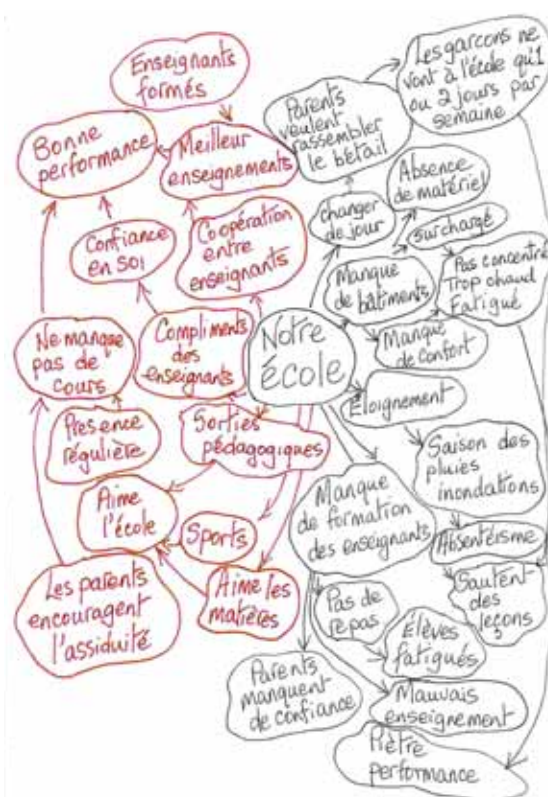 Enseignants
formés
Bonne
performance
Meilleur
enseignements
Confiance
en soi
Coopération
entre
enseignants
Ne manque
pas de
cours
Compliments
des
enseignants
Présence
régulière
Sorties
pédagogiques
Aime
l'école
Sports
Aime les
matières
Les parents
encouragent
l'assiduité
Notre
école
Parents
veulent
rassembler
le bétail
Les garcons ne
vont à l'école qu'1
ou 2 jours par
semaine
changer
de jour
Absence
de matériel
Manque
de bâtiments
surchargé
Pas concentré
Trop chaud
Fatigué
Manque
de confort
Éloignement
Saison des
pluies
inondations
Manque
de formation
des enseignants
Absentéisme
Sautent
des
leçons
Pas de
repas
Élèves
fatigués
Parents
manquent
de confiance
Mauvais
enseignement
Piètre
performance